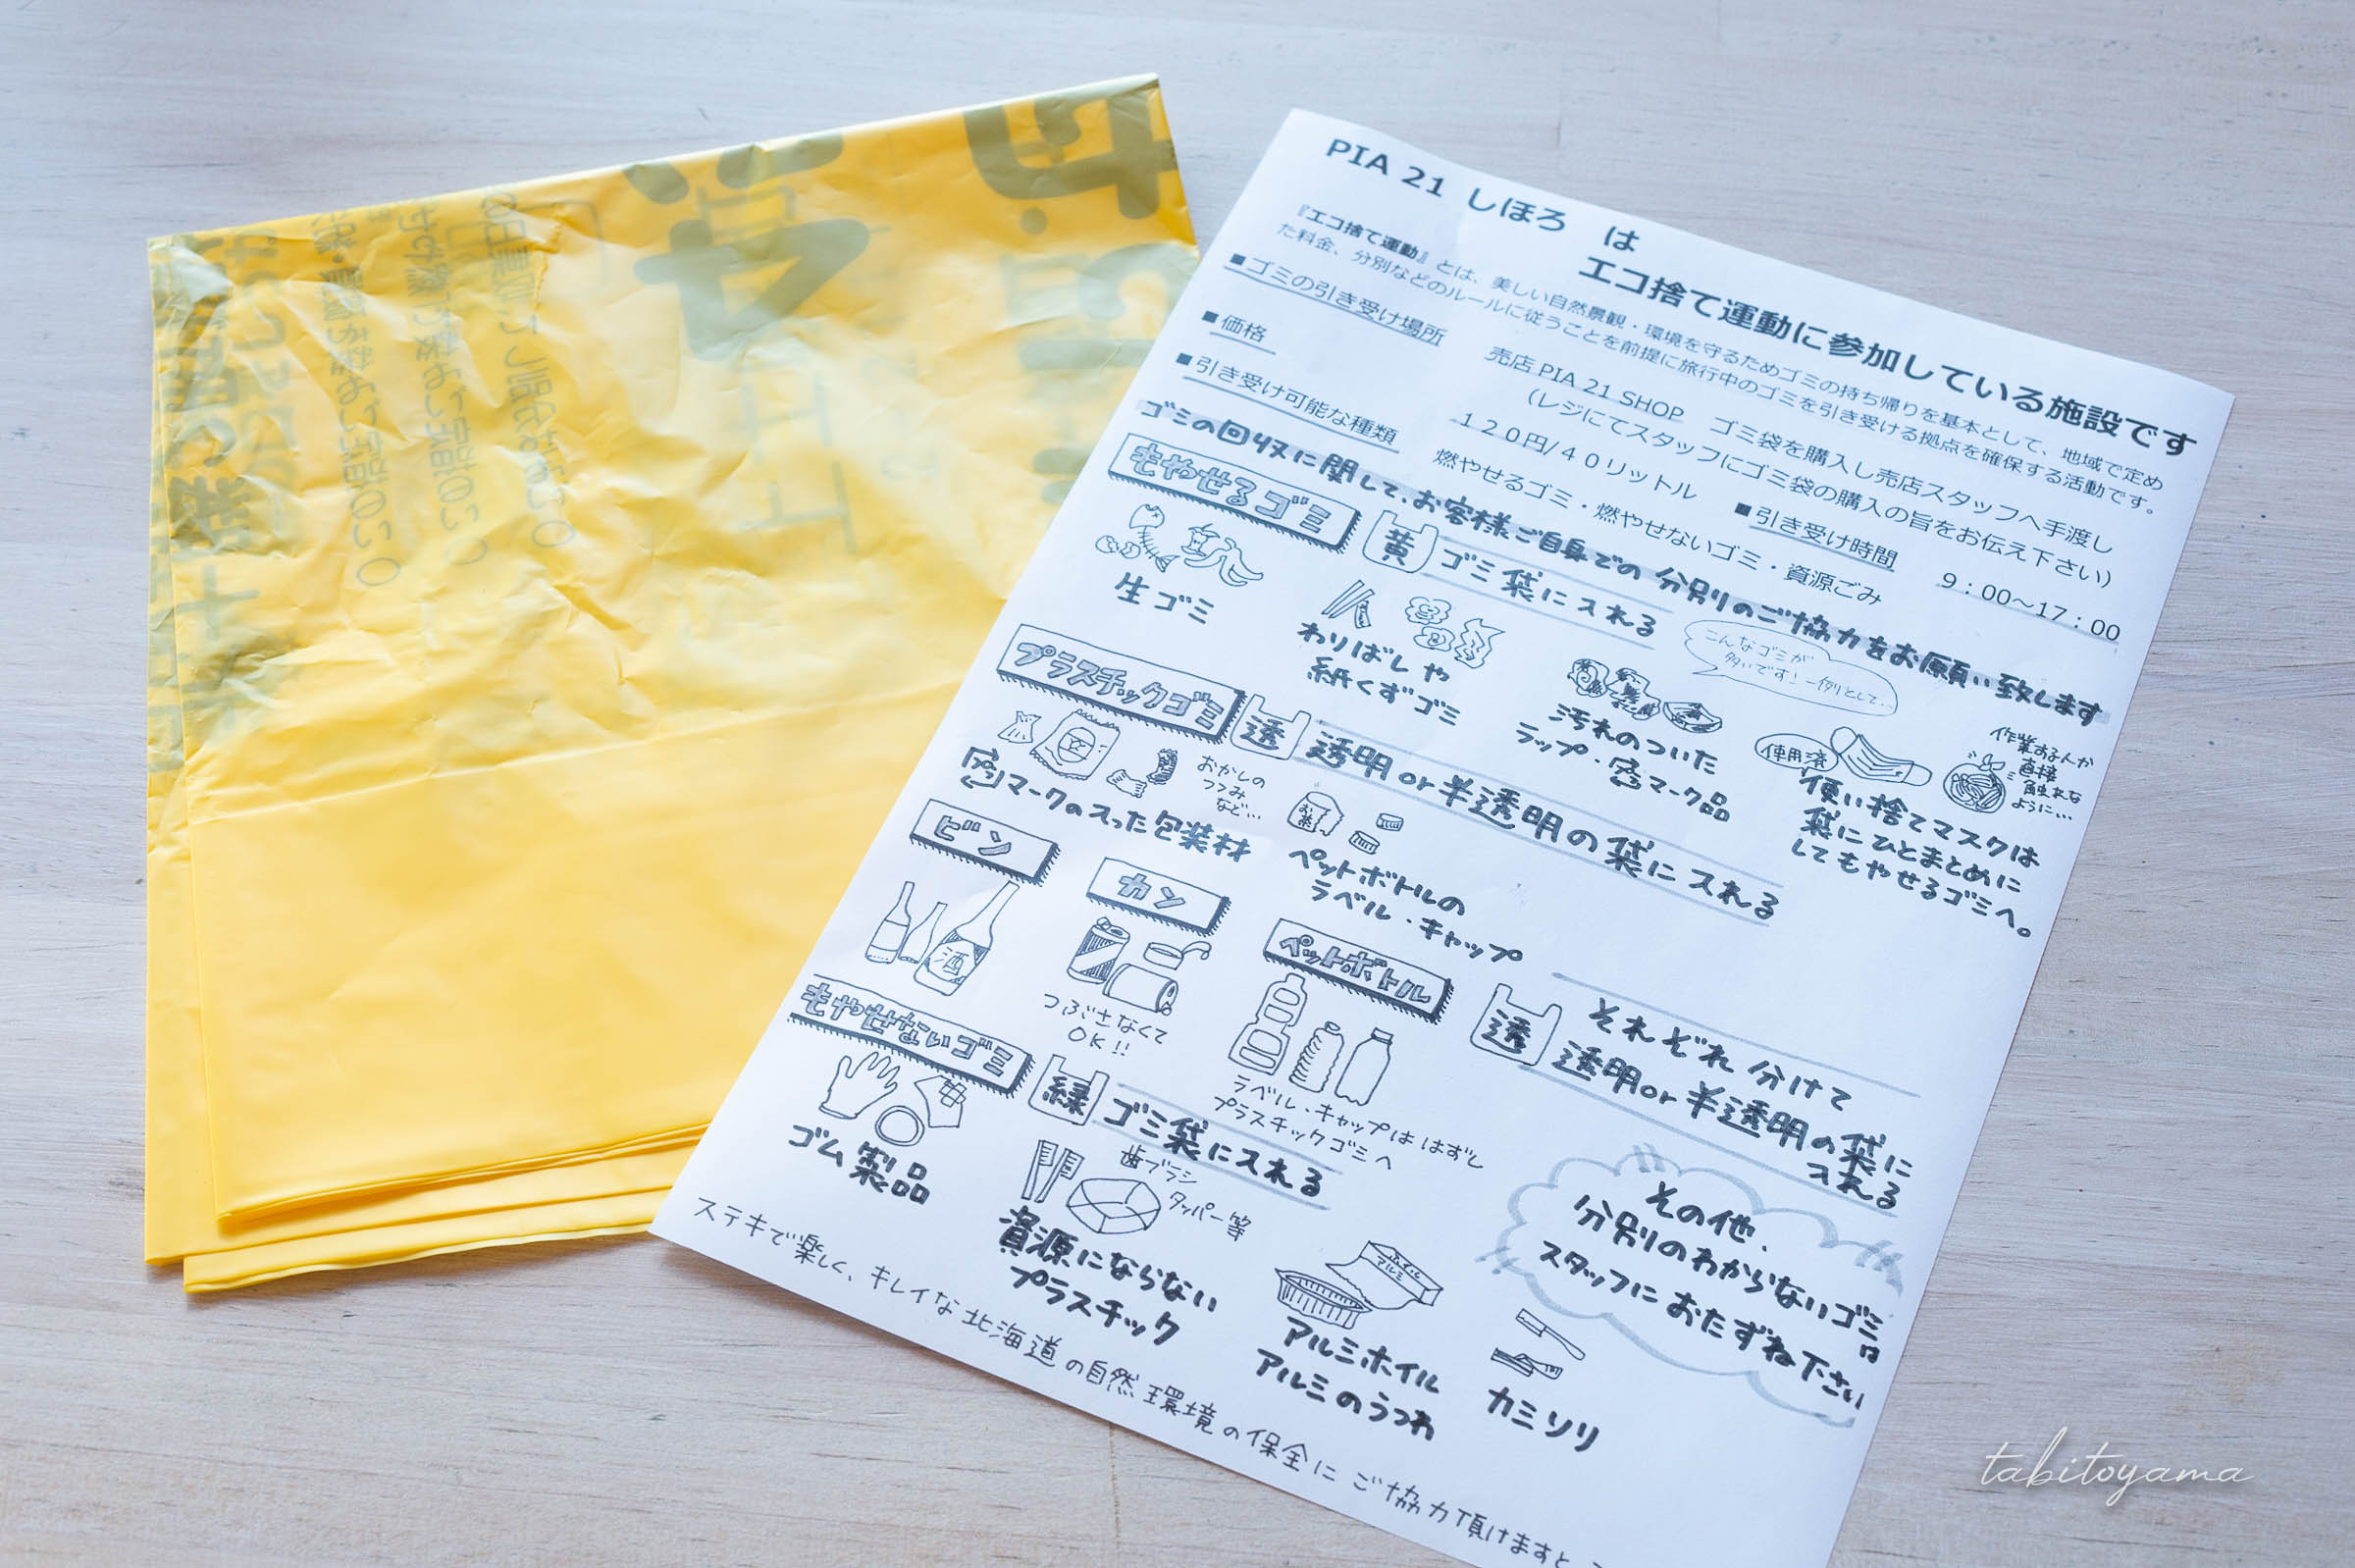 PIA 21 しほろ は
エコ捨て運動に参加している施設です
『エコ捨て運動』とは、美しい自然景観・環境を守るためゴミの持ち帰りを基本として、地域で定め
た料金、分別などのルールに従うことを前提に旅行中のゴミを引き受ける拠点を確保する活動です。
■ゴミの引き受け場所 売店 PIA 21 SHOP ゴミ袋を購入し売店スタッフへ手渡し
(レジにてスタッフにゴミ袋の購入の旨をお伝え下さい)
■価格 120円/40リットル ■引き受け時間 9:00～17:00
■引き受け可能な種類 燃やせるゴミ・燃やせないゴミ・資源ごみ
ゴミの回収に関して、お客様ご自身での分別のご協力をお願い致します
もやせるゴミ
黄 ゴミ袋に入れる
こんなゴミが
多いです!一例として…
生ゴミ
わりばしや
紙くずゴミ
汚れのついた
ラップ・プラマーク品
使用済
作業する人が
直接
触れな
ように…
使い捨てマスクは
袋にひとまとめに
してもやせるゴミへ。
プラスチックゴミ
透 透明or半透明の袋に入れる
おかしの
つつみ
など…
プラマークの入った包装材
お茶
ペットボトルの
ラベル・キャップ
ビン
酒
カン
つぶさなくて
OK!!
ペットボトル
ラベル・キャップははずし
プラスチックゴミへ
透 それぞれ分けて
透明or半透明の袋に
入れる
もやせないゴミ
緑 ゴミ袋に入れる
ゴム製品
歯ブラシ
タッパー等
資源にならない
プラスチック
ホイル
アルミ
アルミホイル
アルミのうつわ
カミソリ
その他、
分別のわからないゴミは
スタッフにおたずね下さい
ステキで楽しく、キレイな北海道の自然環境の保全にご協力頂けますと
tabitoyama